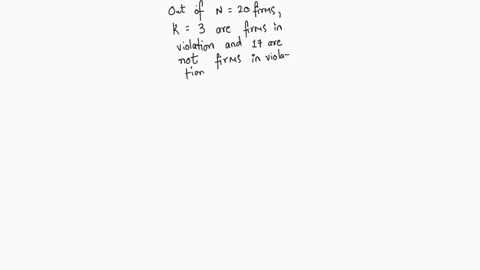 Out of N = 20 firms,
K = 3 are firms in
violation and 17 are
not firms in viola-
tion